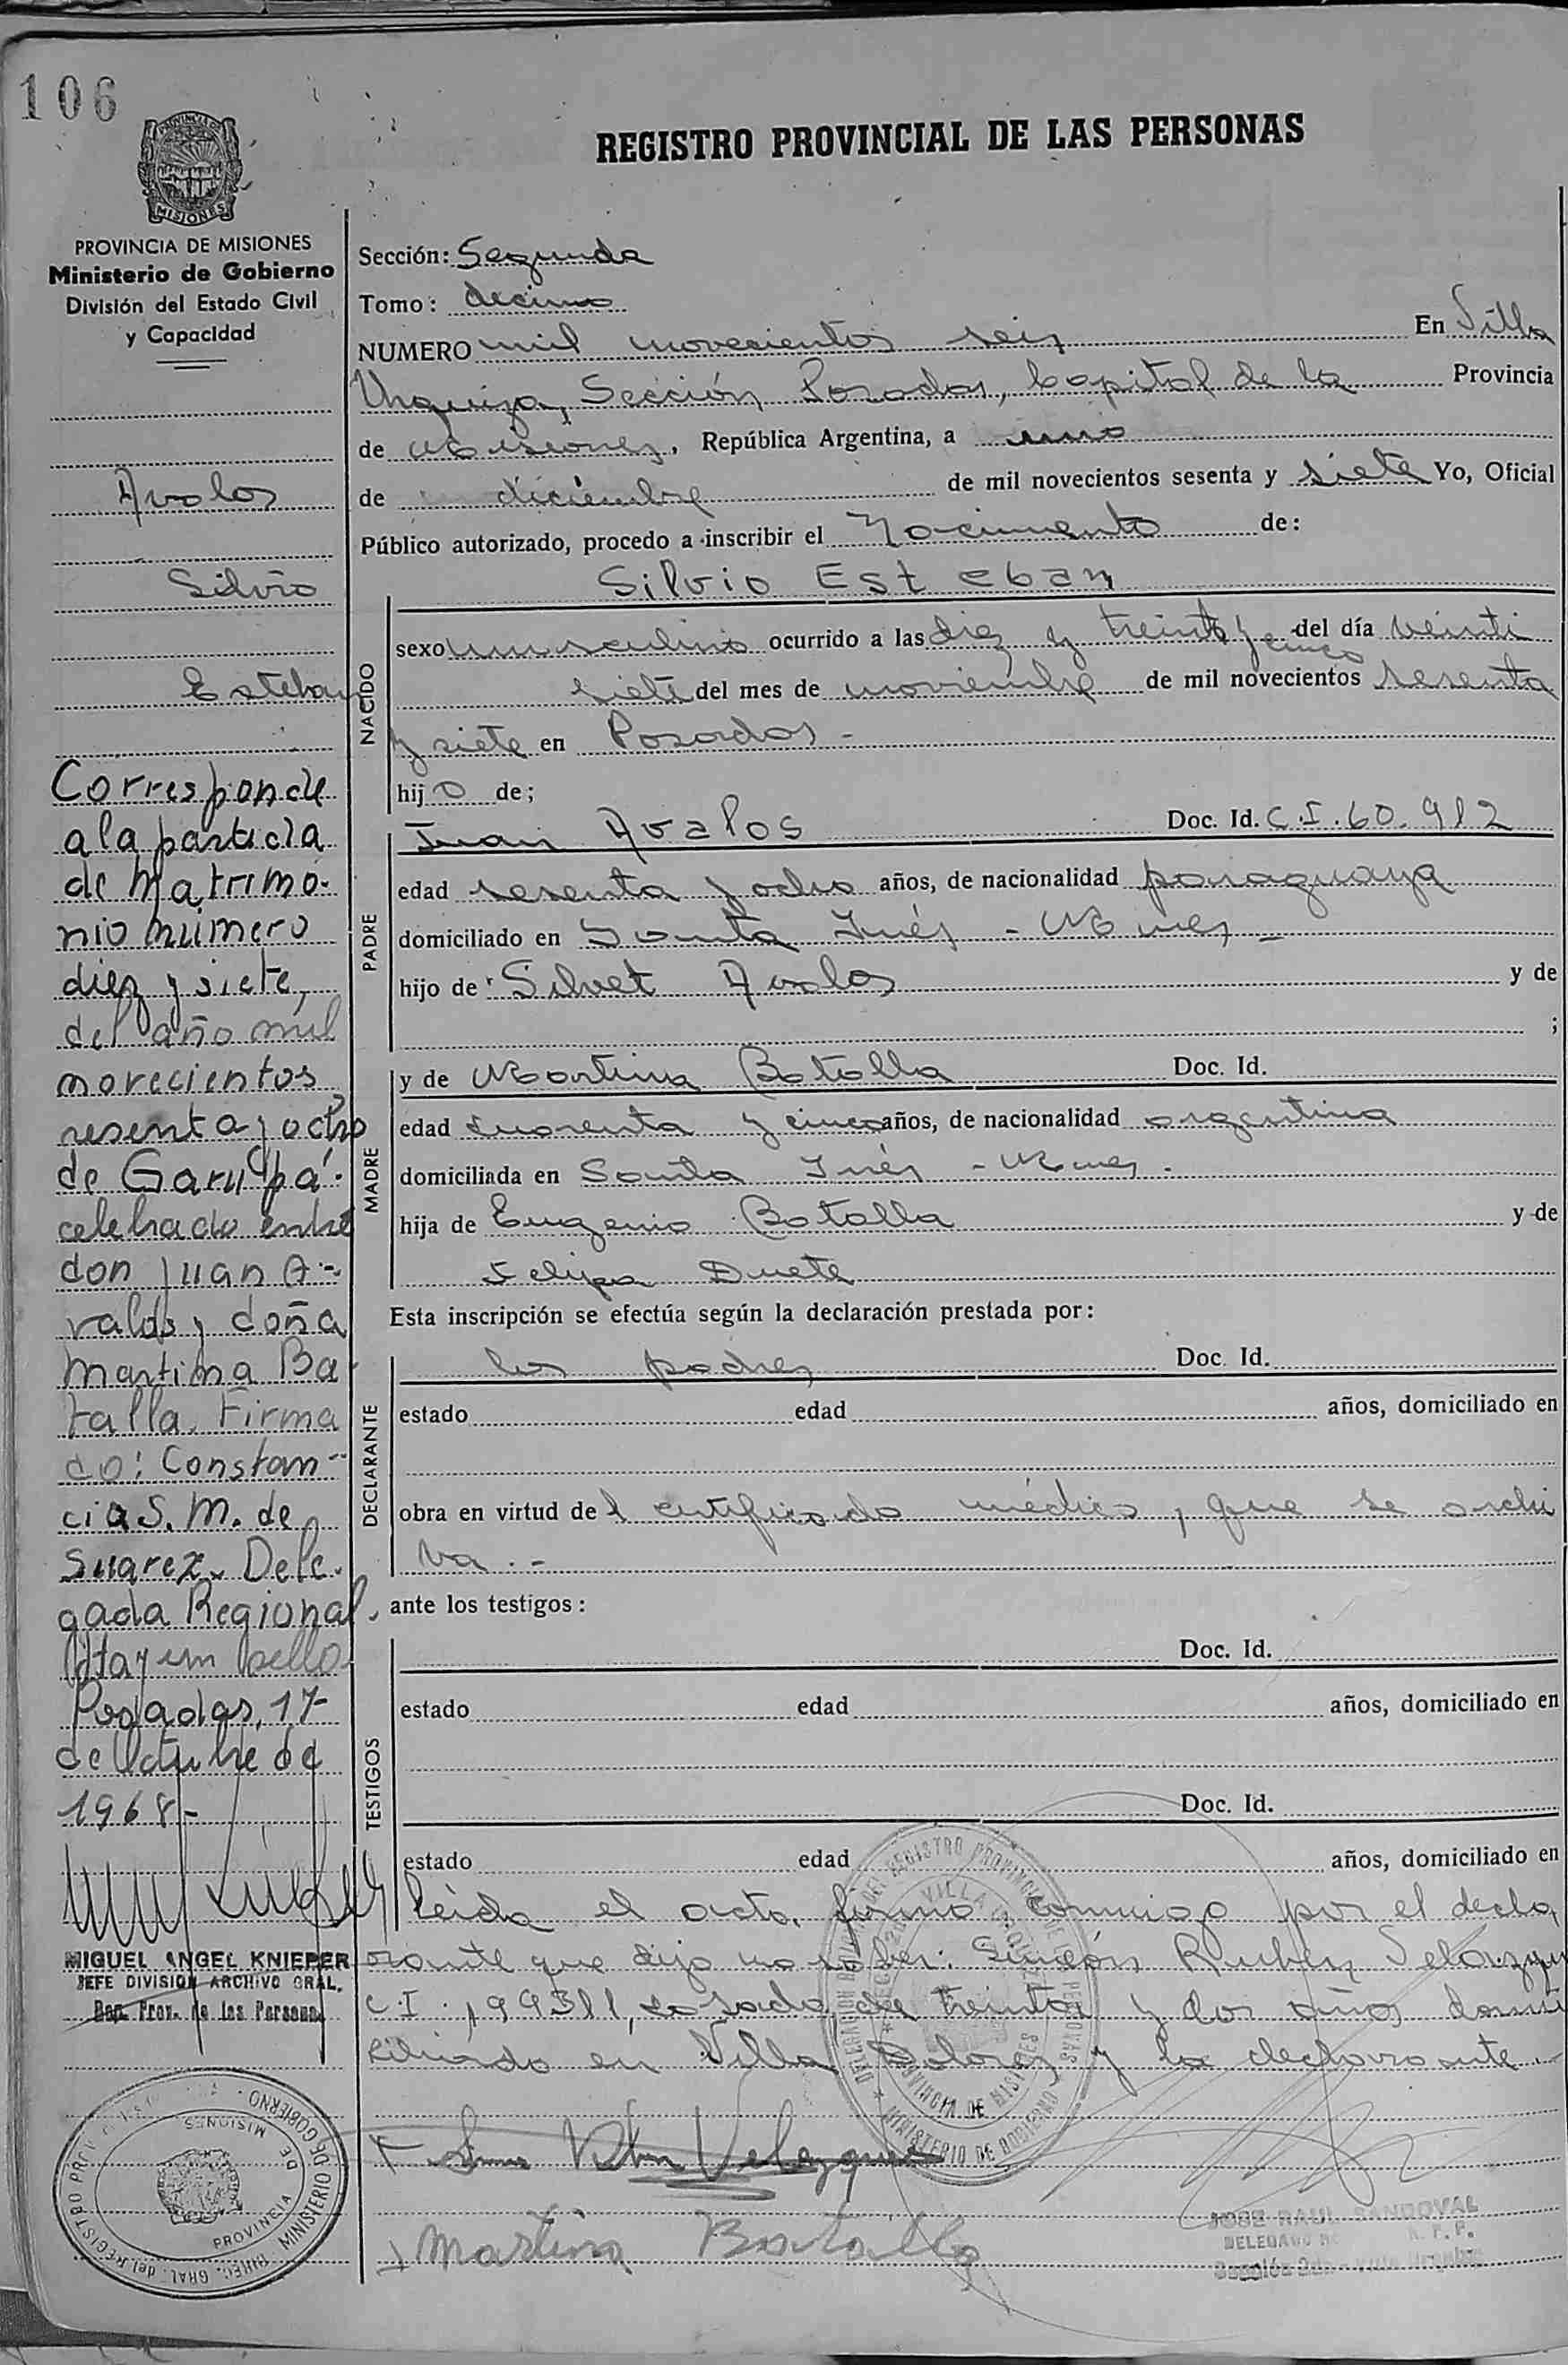 106
REGISTRO PROVINCIAL DE LAS PERSONAS
MISIONES
PROVINCIA DE MISIONES
Ministerio de Gobierno
División del Estado Civil
y Capacidad
Avalos
Silvio
Esteban
Corresponde
a la partida
de Matrimo-
nio número
diez y siete,
del año mil
novecientos
sesenta y ocho
de Garupá.
celebrado entre
don Juan A-
valos y doña
Martina Ba-
talla. Firma
do: Constan-
cia S. M. de
Suarez. Dele-
gada Regional.
Hay un sello
Posadas, 17
de Octubre de
1968.-
MIGUEL ANGEL KNIEPER
JEFE DIVISION ARCHIVO GRAL.
Sección: Segunda
Tomo: decimo
NUMERO mil novecientos seis En Villa
Urquiza, Sección Posadas, Capital de la Provincia
de Misiones, República Argentina, a uno
de diciembre de mil novecientos sesenta y siete Yo, Oficial
Público autorizado, procedo a inscribir el Nacimiento de:
Silvio Esteban
NACIDO
sexo masculino ocurrido a las diez y treinta y cinco del día veinti
siete del mes de noviembre de mil novecientos sesenta
y siete en Posadas -
hijo de;
PADRE
Juan Avalos Doc. Id. C.I. 60.912
edad sesenta y ocho años, de nacionalidad paraguaya
domiciliado en Santa Inés - Mnes -
hijo de Silvet Avalos y de
;
MADRE
y de Martina Batalla Doc. Id.
edad cuarenta y cinco años, de nacionalidad argentina
domiciliada en Santa Inés - Mnes -
hija de Eugenio Batalla y de
Felipa Duete
Esta inscripción se efectúa según la declaración prestada por:
DECLARANTE
los padres Doc. Id.
estado edad años, domiciliado en
obra en virtud del certificado médico, que se archi
va.-
ante los testigos:
TESTIGOS
Doc. Id.
estado edad años, domiciliado en
Doc. Id.
estado edad años, domiciliado en
Leida el acta, firma conmigo por el decla
rante que dijo no saber: Simeón Ruben Velazquez
C.I. 199311, casado, de treinta y dos años, domi
ciliado en Villa Dolores y la declarante.-
Velazquez
Martina Batalla
JOSE RAUL SANDOVAL
DELEGADO
PROVINCIA DE MISIONES
MINISTERIO DE GOBIERNO
DIREC. GRAL. del REGISTRO PROV
MINISTERIO DE GOBIERNO
PROVINCIA DE MISIONES